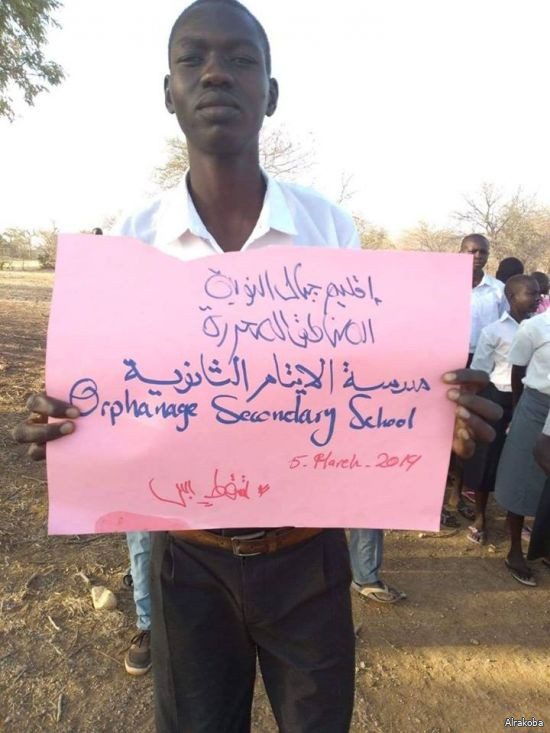 إقليم جبال النوبة
المناطق المحررة
مدرسة الايتام الثانوية
Orphanage Secondary School
5 - March - 2019
# تسقط بس
Alrakoba